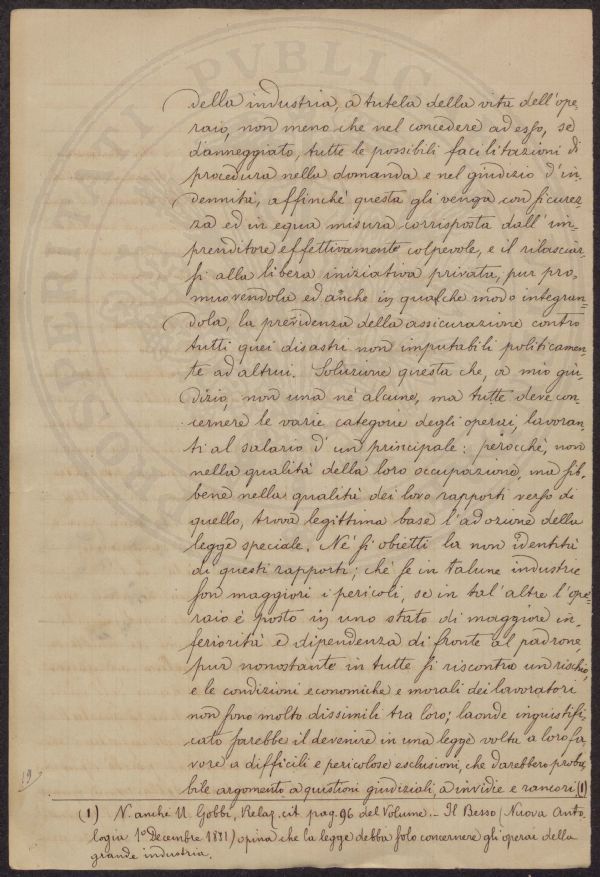 PROSPERITATI PUBLIC
della industria, a tutela della vita dell'ope-
raio, non meno che nel concedere ad esso, se
danneggiato, tutte le possibili facilitazioni di
procedura nella domanda e nel giudizio d'in-
dennità, affinchè questa gli venga con sicurez-
za ed in equa misura corrisposta dall'im-
prenditore effettivamente colpevole, e il rilasciar-
si alla libera iniziativa privata, pur pro-
muovendola ed anche in qualche modo integran-
dola, la previdenza della assicurazione contro
tutti quei disastri non imputabili politicamen-
te ad altrui. Soluzione questa che, a mio giu-
dizio, non una nè alcune, ma tutte deve con-
cernere le varie categorie degli operai, lavoran-
ti al salario d'un principale: perocchè, non
nella qualità della loro occupazione, ma sib-
bene nella qualità dei loro rapporti verso di
quello, trova legittima base l'adozione della
legge speciale. Nè si obietti la non identità
di questi rapporti; chè se in talune industrie
son maggiori i pericoli, se in tal'altre l'ope-
raio è posto in uno stato di maggiore in-
feriorità e dipendenza di fronte al padrone,
pur nonostante in tutte si riscontra un rischio,
e le condizioni economiche e morali dei lavoratori
non sono molto dissimili tra loro; laonde ingiustifi-
cato sarebbe il devenire in una legge volta a loro fa-
vore a difficili e pericolose esclusioni, che darebbero proba-
bile argomento a questioni giudiziali, a invidie e rancori.(1)
19
(1) V. anche U. Gobbi, Relaz. cit. pag. 96 del Volume. - Il Besso (Nuova Anto-
logia 1º Decembre 1881) opina che la legge debba solo concernere gli operai della
grande industria.